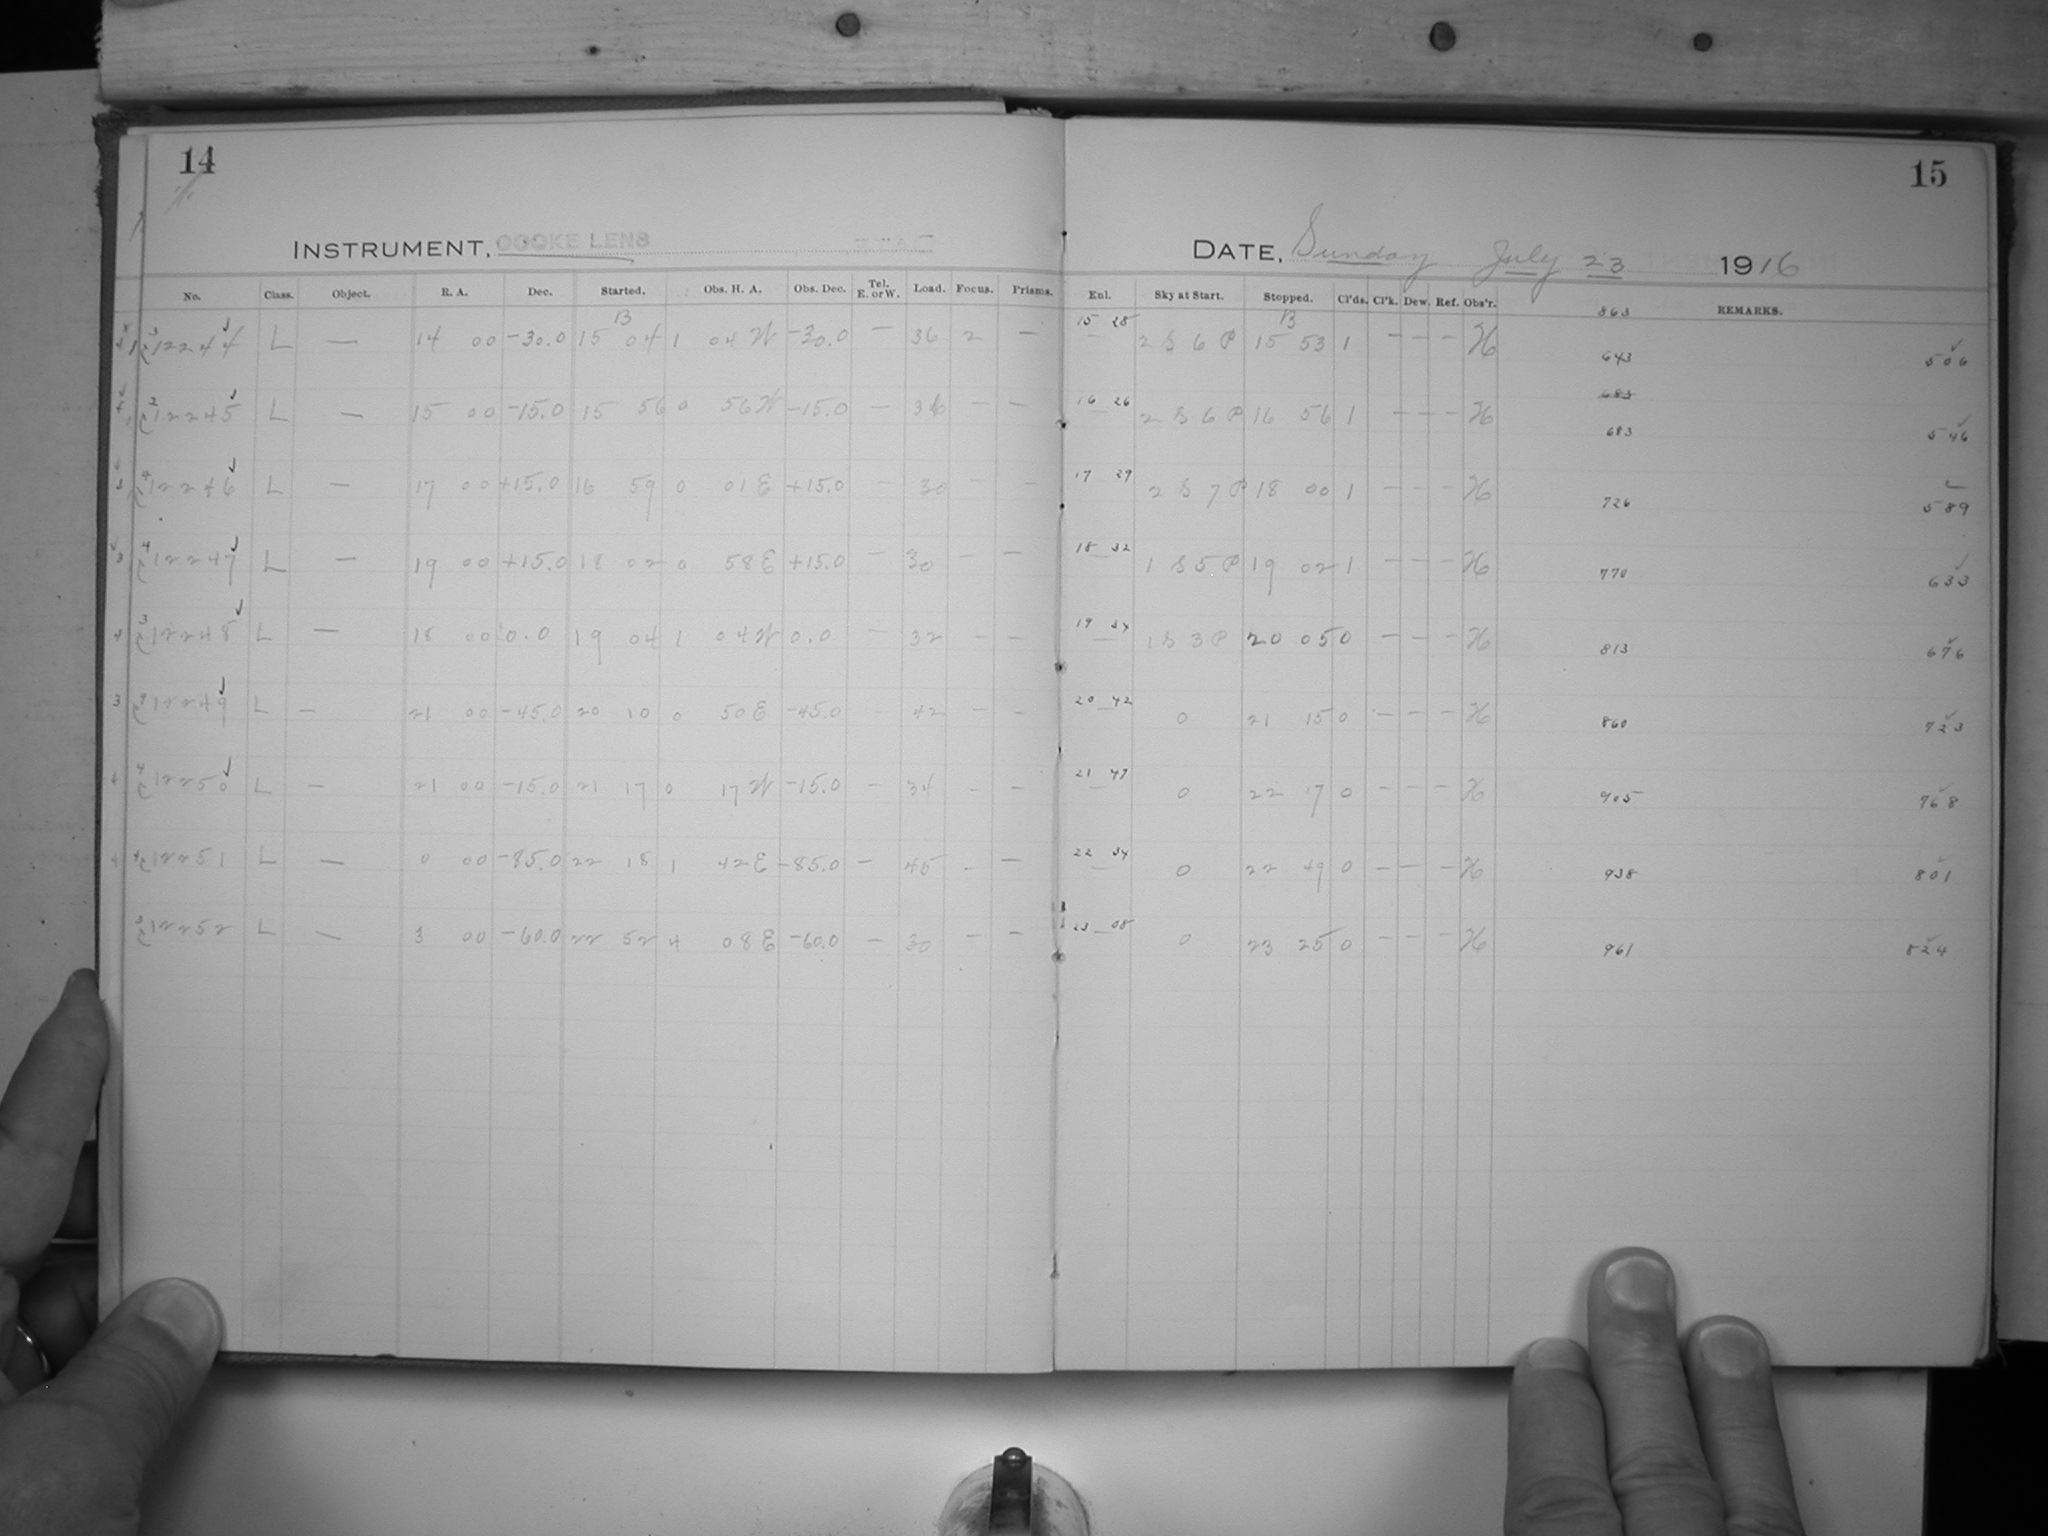 14
15
INSTRUMENT, COOKE LENS
DATE, Sunday July 23 1916
No. Class. Object. R. A. Dec. Started. Obs. H. A. Obs. Dec. Tel. E. or W. Load. Focus. Prisms. Enl. Sky at Start. Stopped. Cl'ds. Cl'k. Dew. Ref. Obs'r. REMARKS.
863
3 12244 L — 14 00 -30.0 B 15 04 1 04 W -30.0 — 36 2 — 15 28 — 2 S 6 P B 15 53 1 — — — H 643 506
683
2 12245 L — 15 00 -15.0 15 56 0 56 W -15.0 — 36 — — 16 26 — 2 S 6 P 16 56 1 — — — H 683 546
4 12246 L — 17 00 +15.0 16 59 0 01 E +15.0 — 30 — — 17 29 2 S 7 P 18 00 1 — — — H 726 589
4 12247 L — 19 00 +15.0 18 02 0 58 E +15.0 — 30 — — 18 32 1 S 5 P 19 02 1 — — — H 770 633
3 12248 L — 18 00 0.0 19 04 1 04 W 0.0 — 32 — — 19 34 — 1 S 3 P 20 05 0 — — — H 813 676
12249 L — 21 00 -45.0 20 10 0 50 E -45.0 — 42 — — 20 42 0 21 15 0 — — — H 860 723
4 12250 L — 21 00 -15.0 21 17 0 17 W -15.0 — 34 — — 21 47 — 0 22 17 0 — — — H 905 768
4 12251 L — 0 00 -85.0 22 18 1 42 E -85.0 — 45 — — 22 34 — 0 22 49 0 — — — H 938 801
3 12252 L — 3 00 -60.0 22 52 4 08 E -60.0 — 30 — — 23 08 0 23 25 0 — — — H 961 824